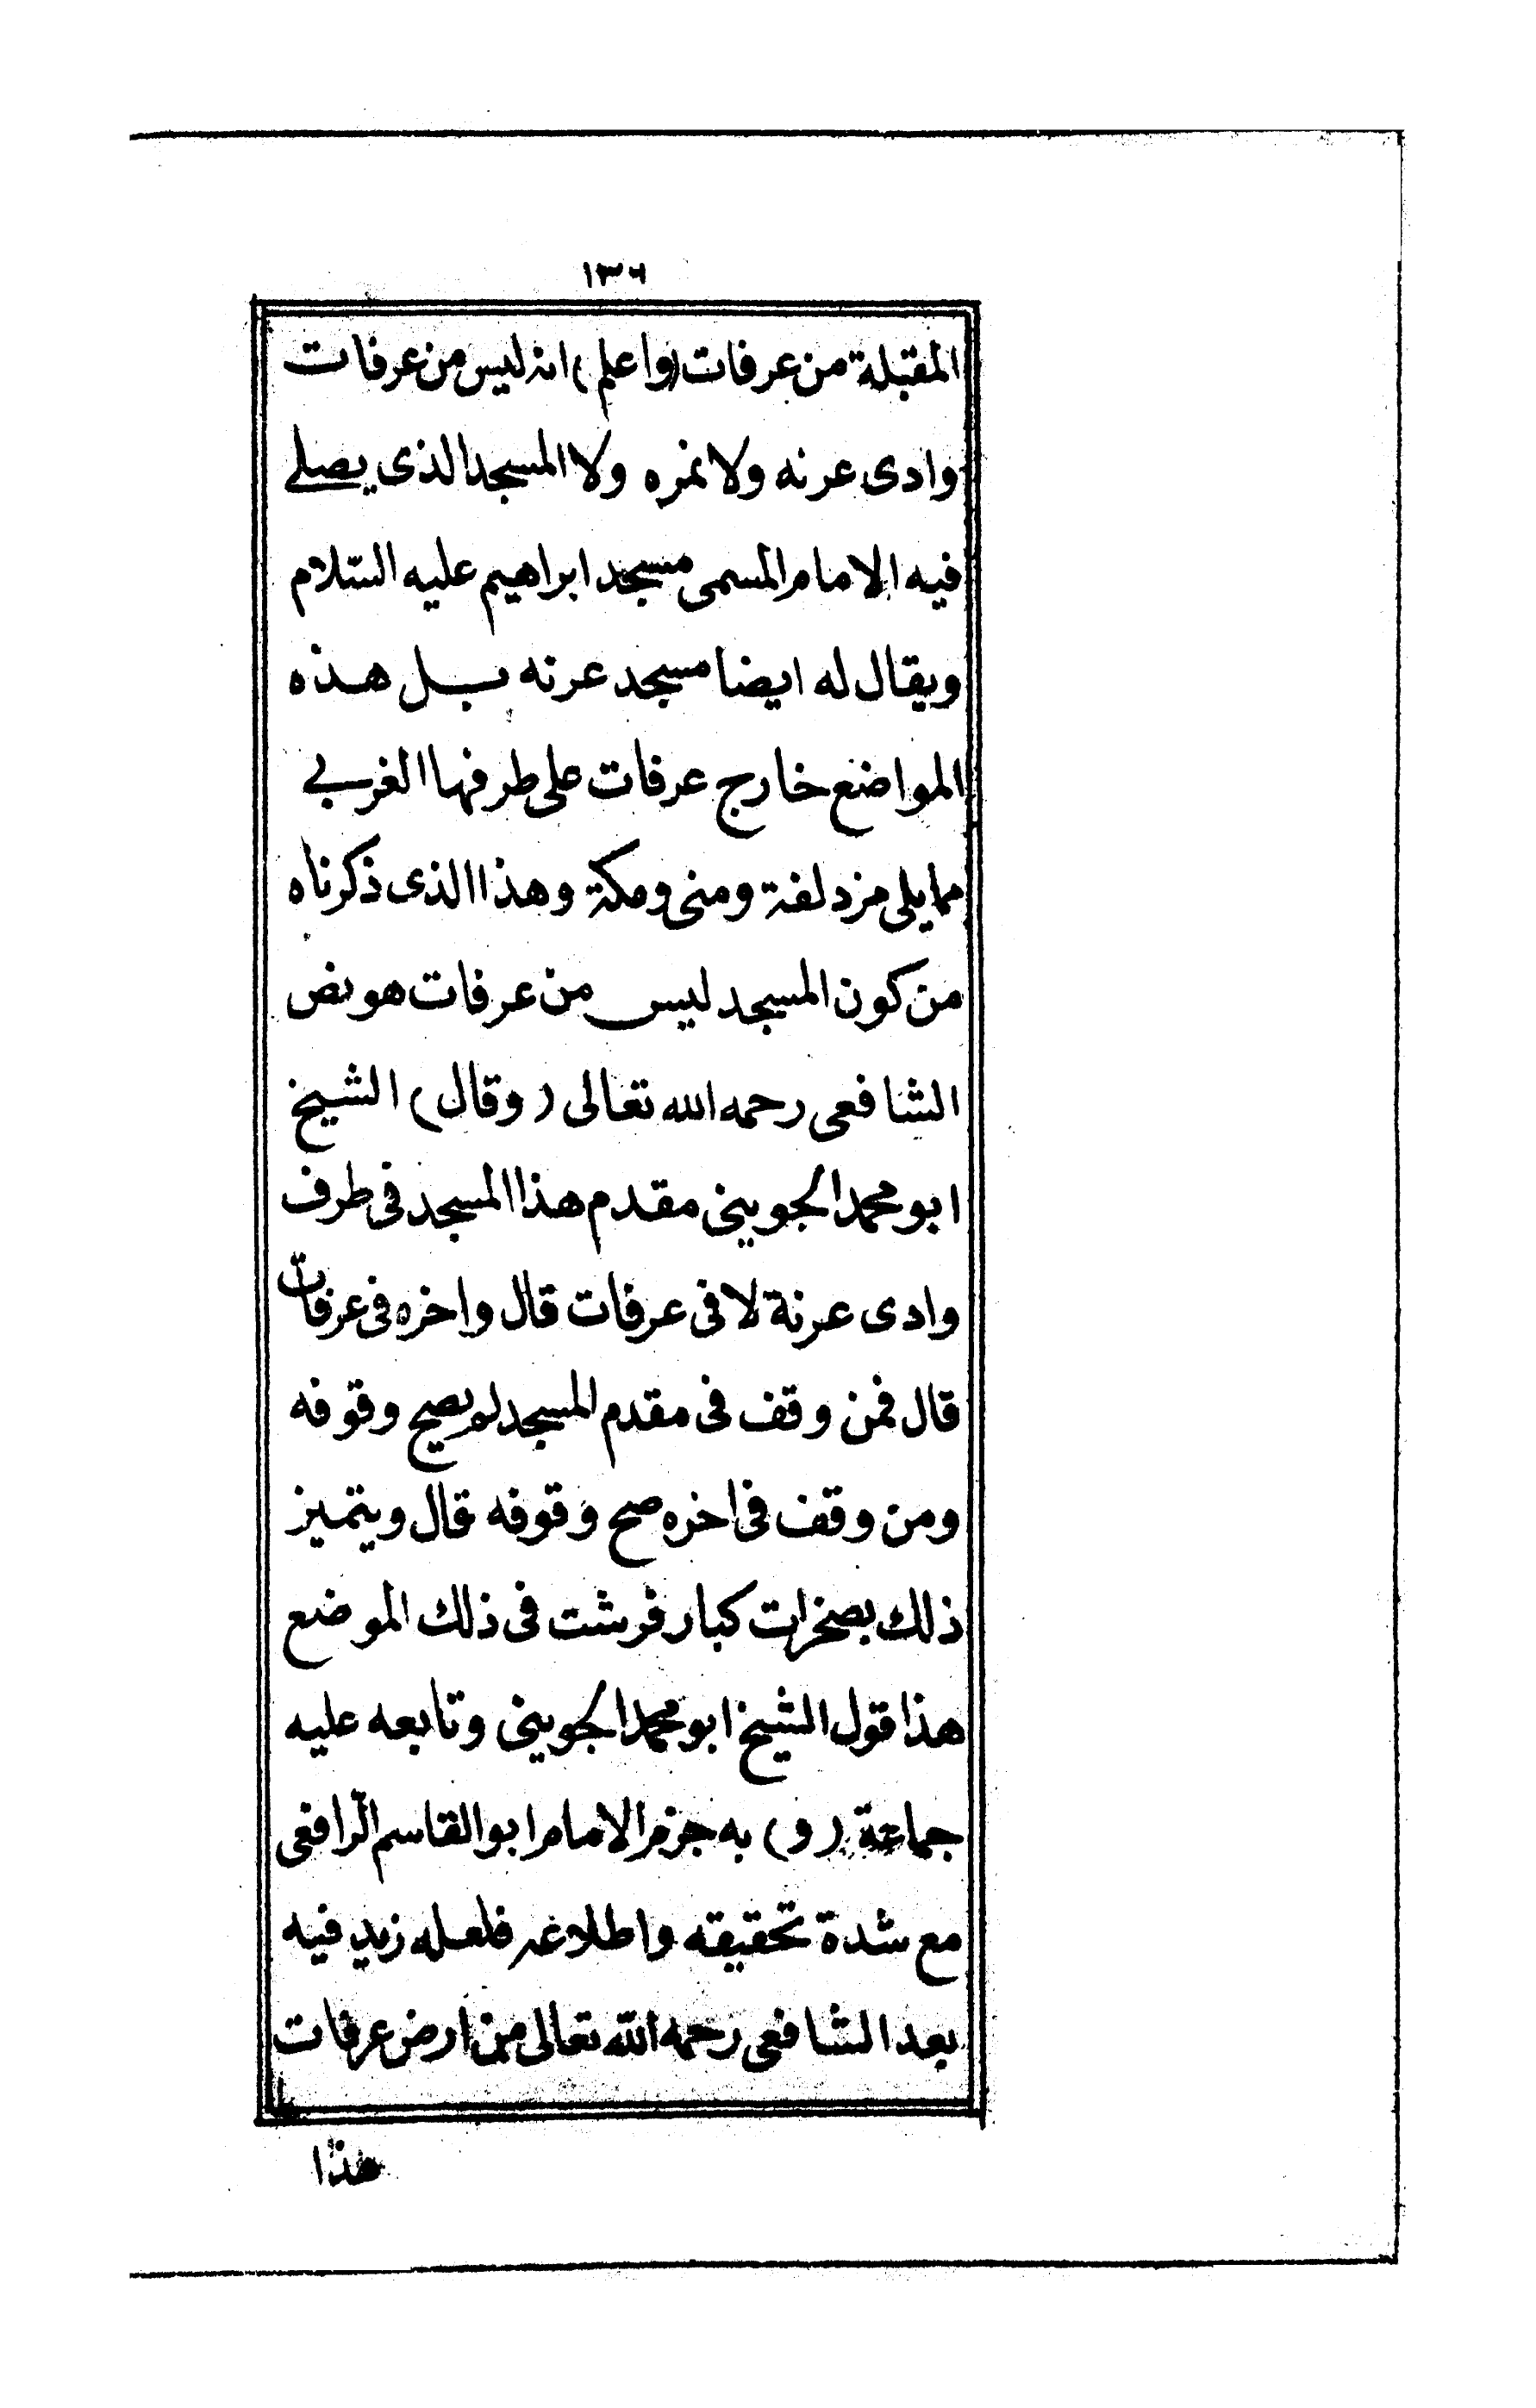 ١٣٦
المقبلة من عرفات (واعلم) انه ليس من عرفات
وادى عرنه ولا نمره ولا المسجد الذى يصلے
فيه الامام المسمى مسجد ابراهيم عليه السّلام
ويقال له ايضا مسجد عرنه بل هذه
المواضع خارج عرفات على طرفها الغربے
مما يلى مزدلفة ومنى ومكة وهذا الذى ذكرناه
من كون المسجد ليس من عرفات هو نص
الشافعى رحمه الله تعالى (وقال) الشيخ
ابو محمد الجوينى مقدم هذا المسجد فى طرف
وادى عرنة لا فى عرفات قال واخره فى عرفات
قال فمن وقف فى مقدم المسجد لم يصح وقوفه
ومن وقف فى اخره صح وقوفه قال ويتميز
ذلك بصخرات كبار فرشت فى ذلك الموضع
هذا قول الشيخ ابو محمد الجوينى وتابعه عليه
جماعة (و) به جزم الامام ابو القاسم الرّافعى
مع شدة تحقيقه واطلاعه فلعله زيد فيه
بعد الشافعى رحمه اللّه تعالى من ارض عرفات
هذا